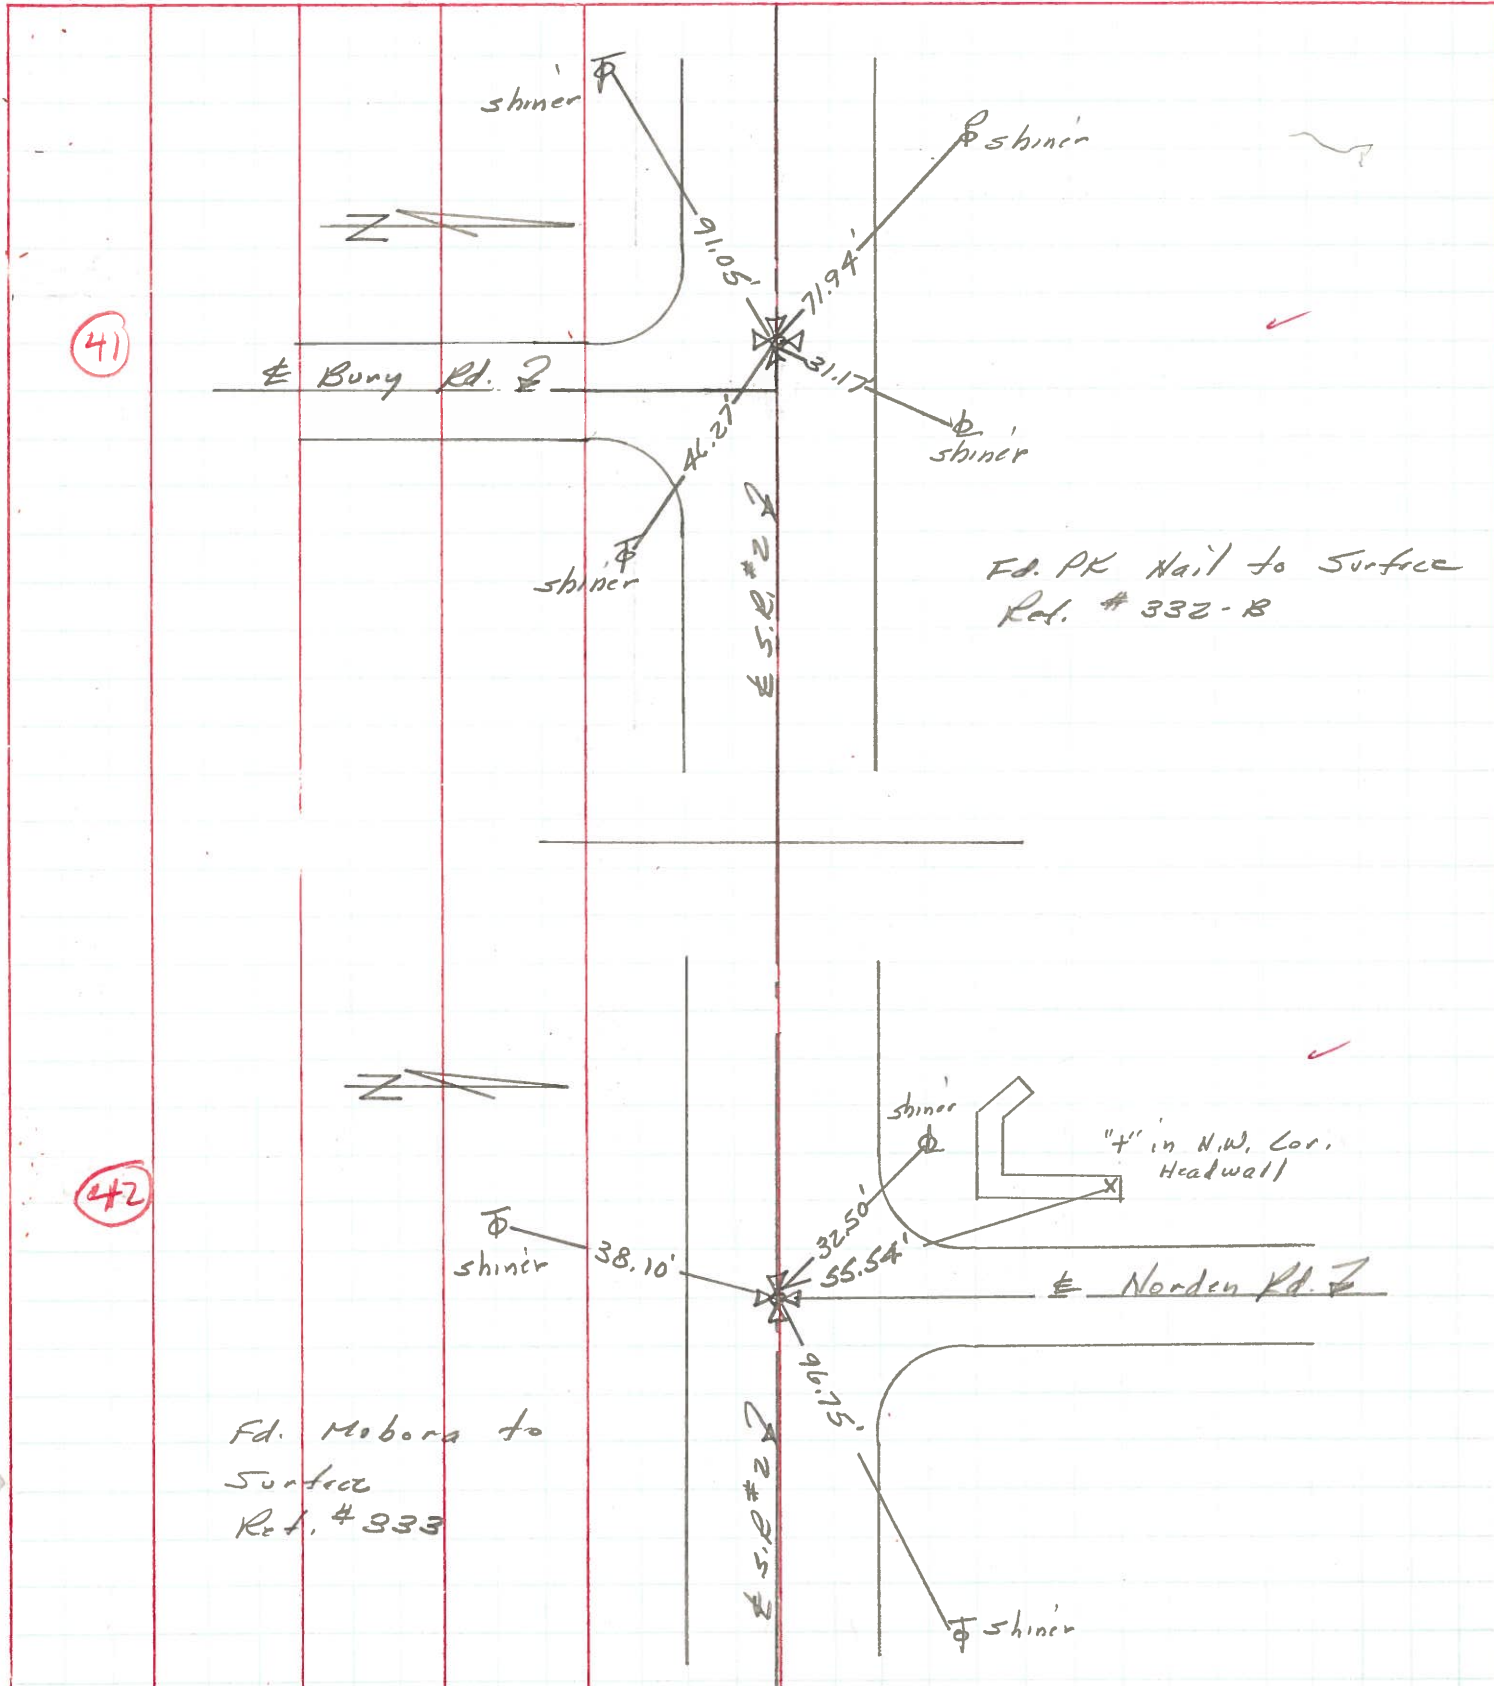 shiner
shiner
91.05'
71.94'
N
41
℄ Bury Rd.
31.17'
shiner
46.27'
shiner
℄ S.R. #2
Fd. PK Nail to Surface
Ref. # 332-B
N
shiner
"+" in N.W. Cor.
Headwall
42
shiner
38.10'
32.50'
55.54'
℄ Norden Rd.
96.75'
Fd. Mobora to
Surface
Ref. # 333
℄ S.R #2
shiner